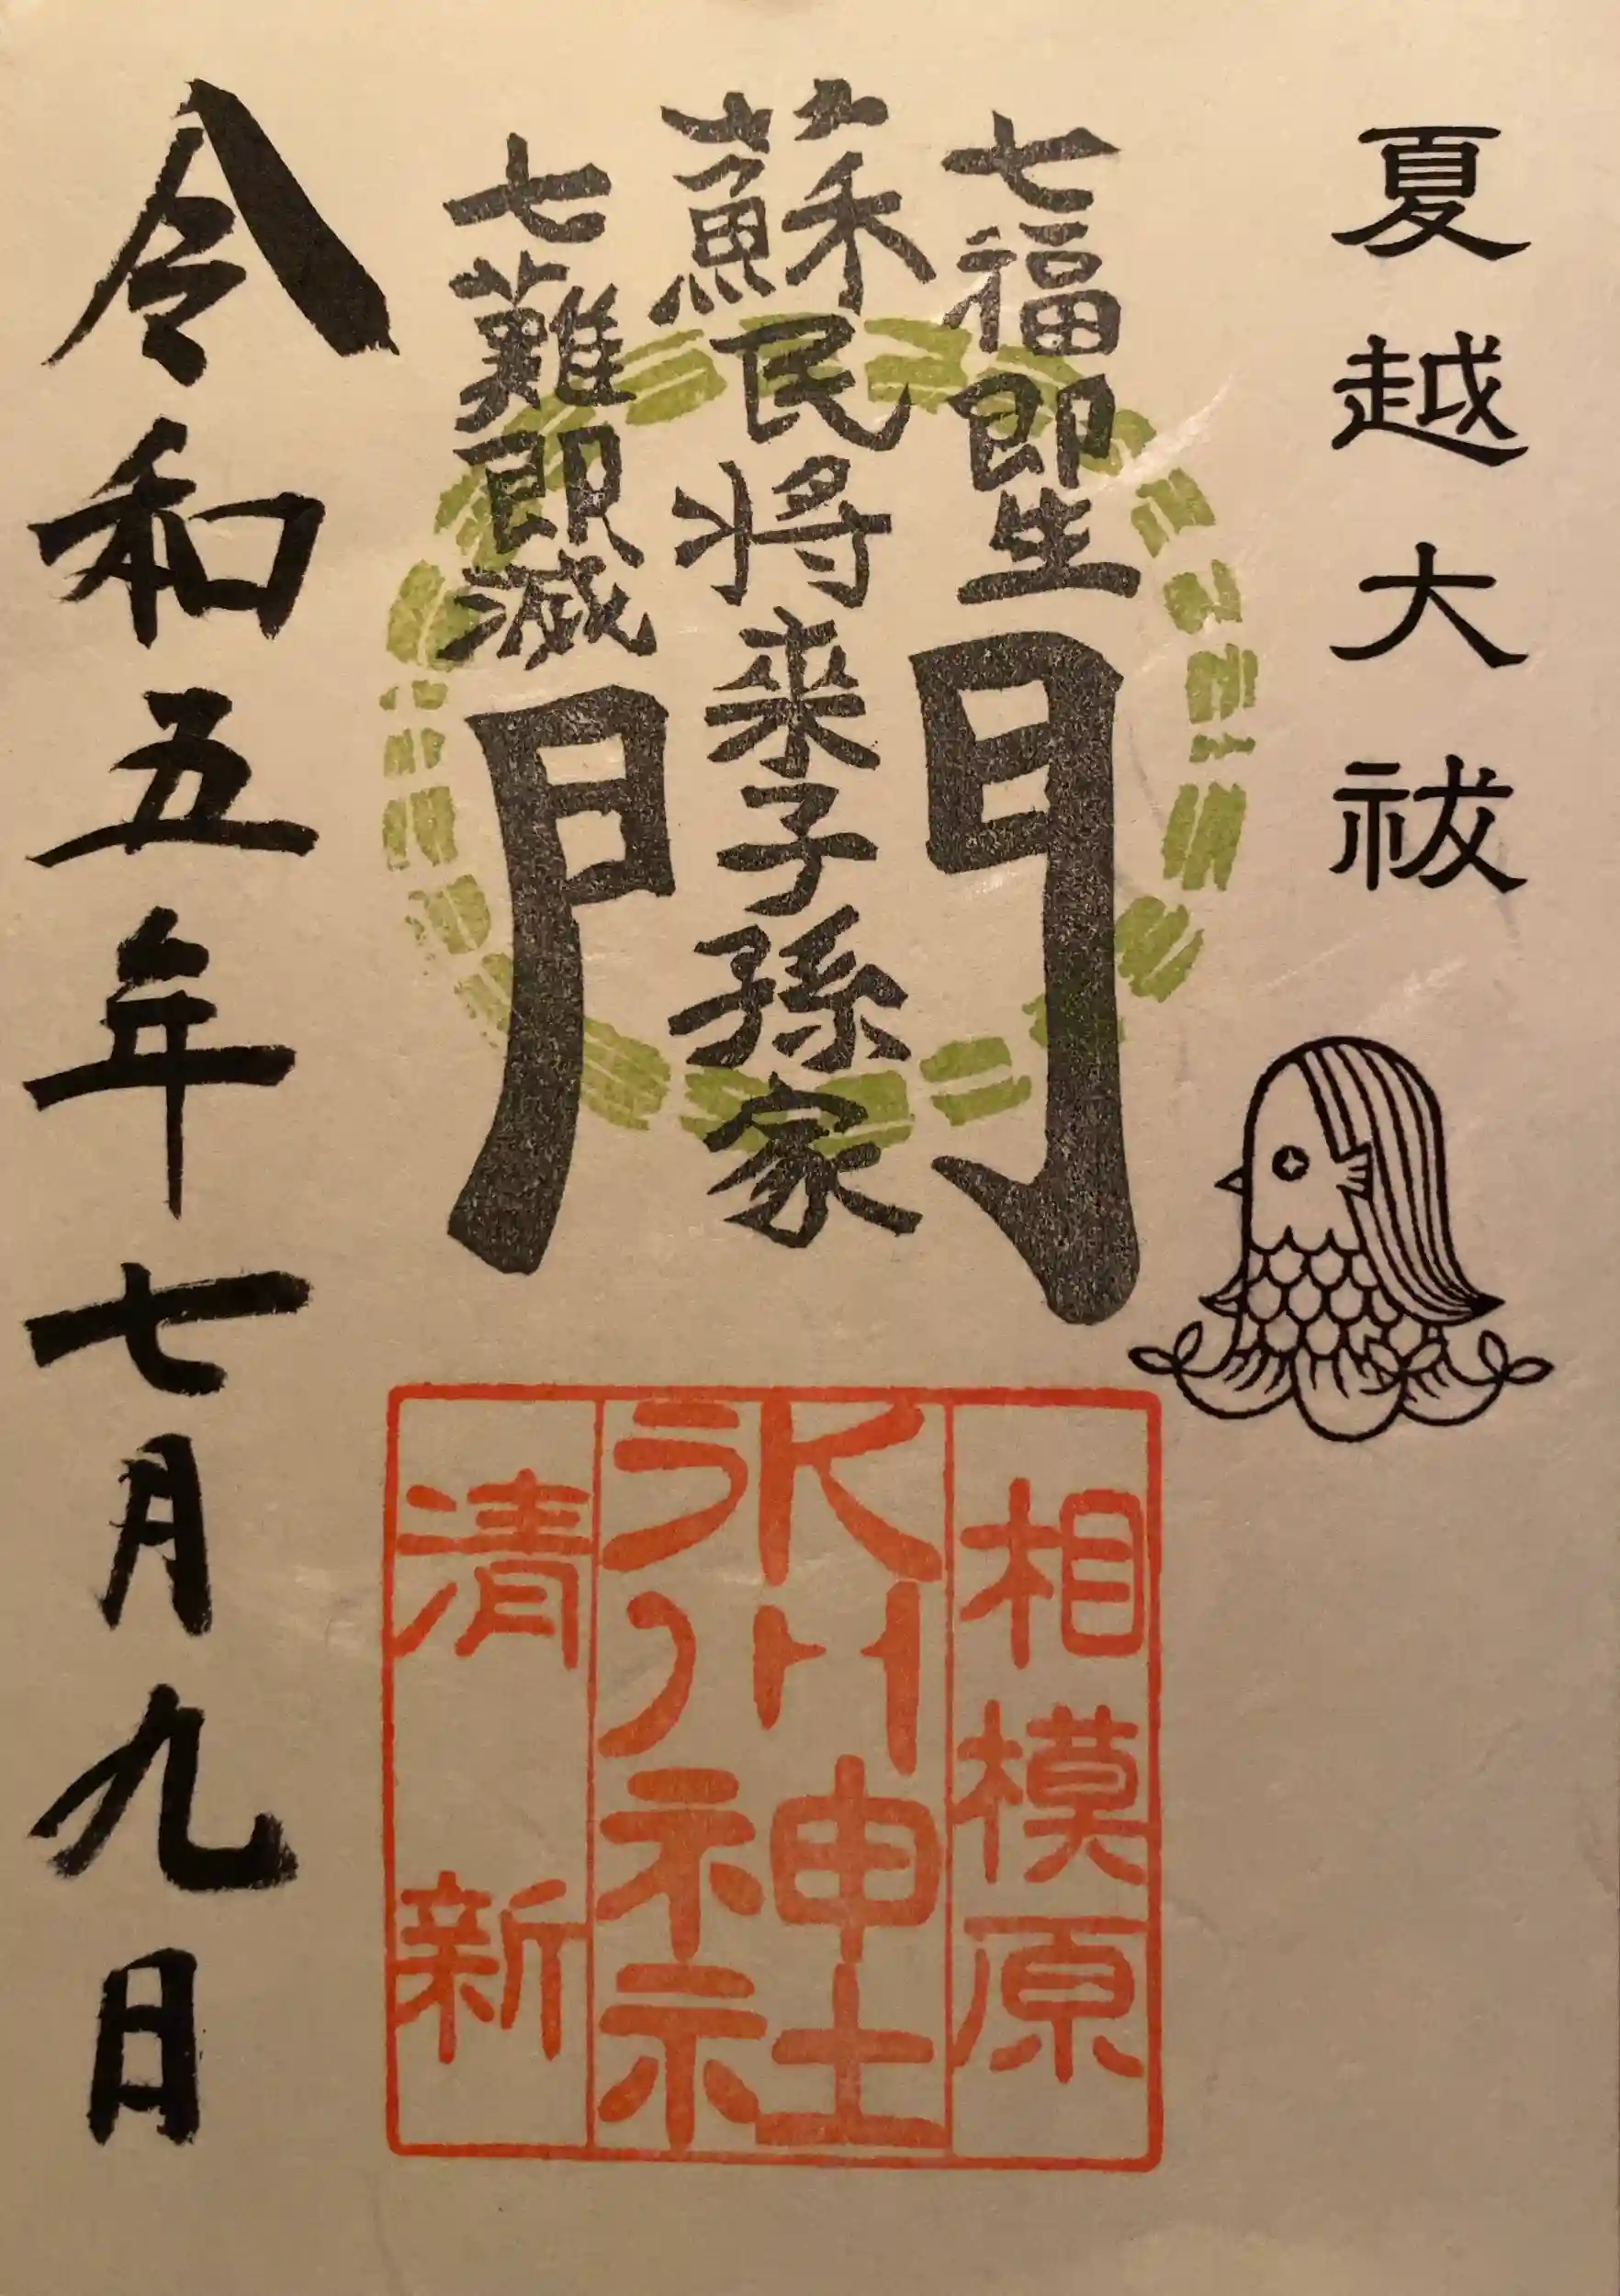 夏越大祓
七福即生
蘇民将来子孫家
七難即滅
門
相模原
氷川神社
清新
令和五年七月九日